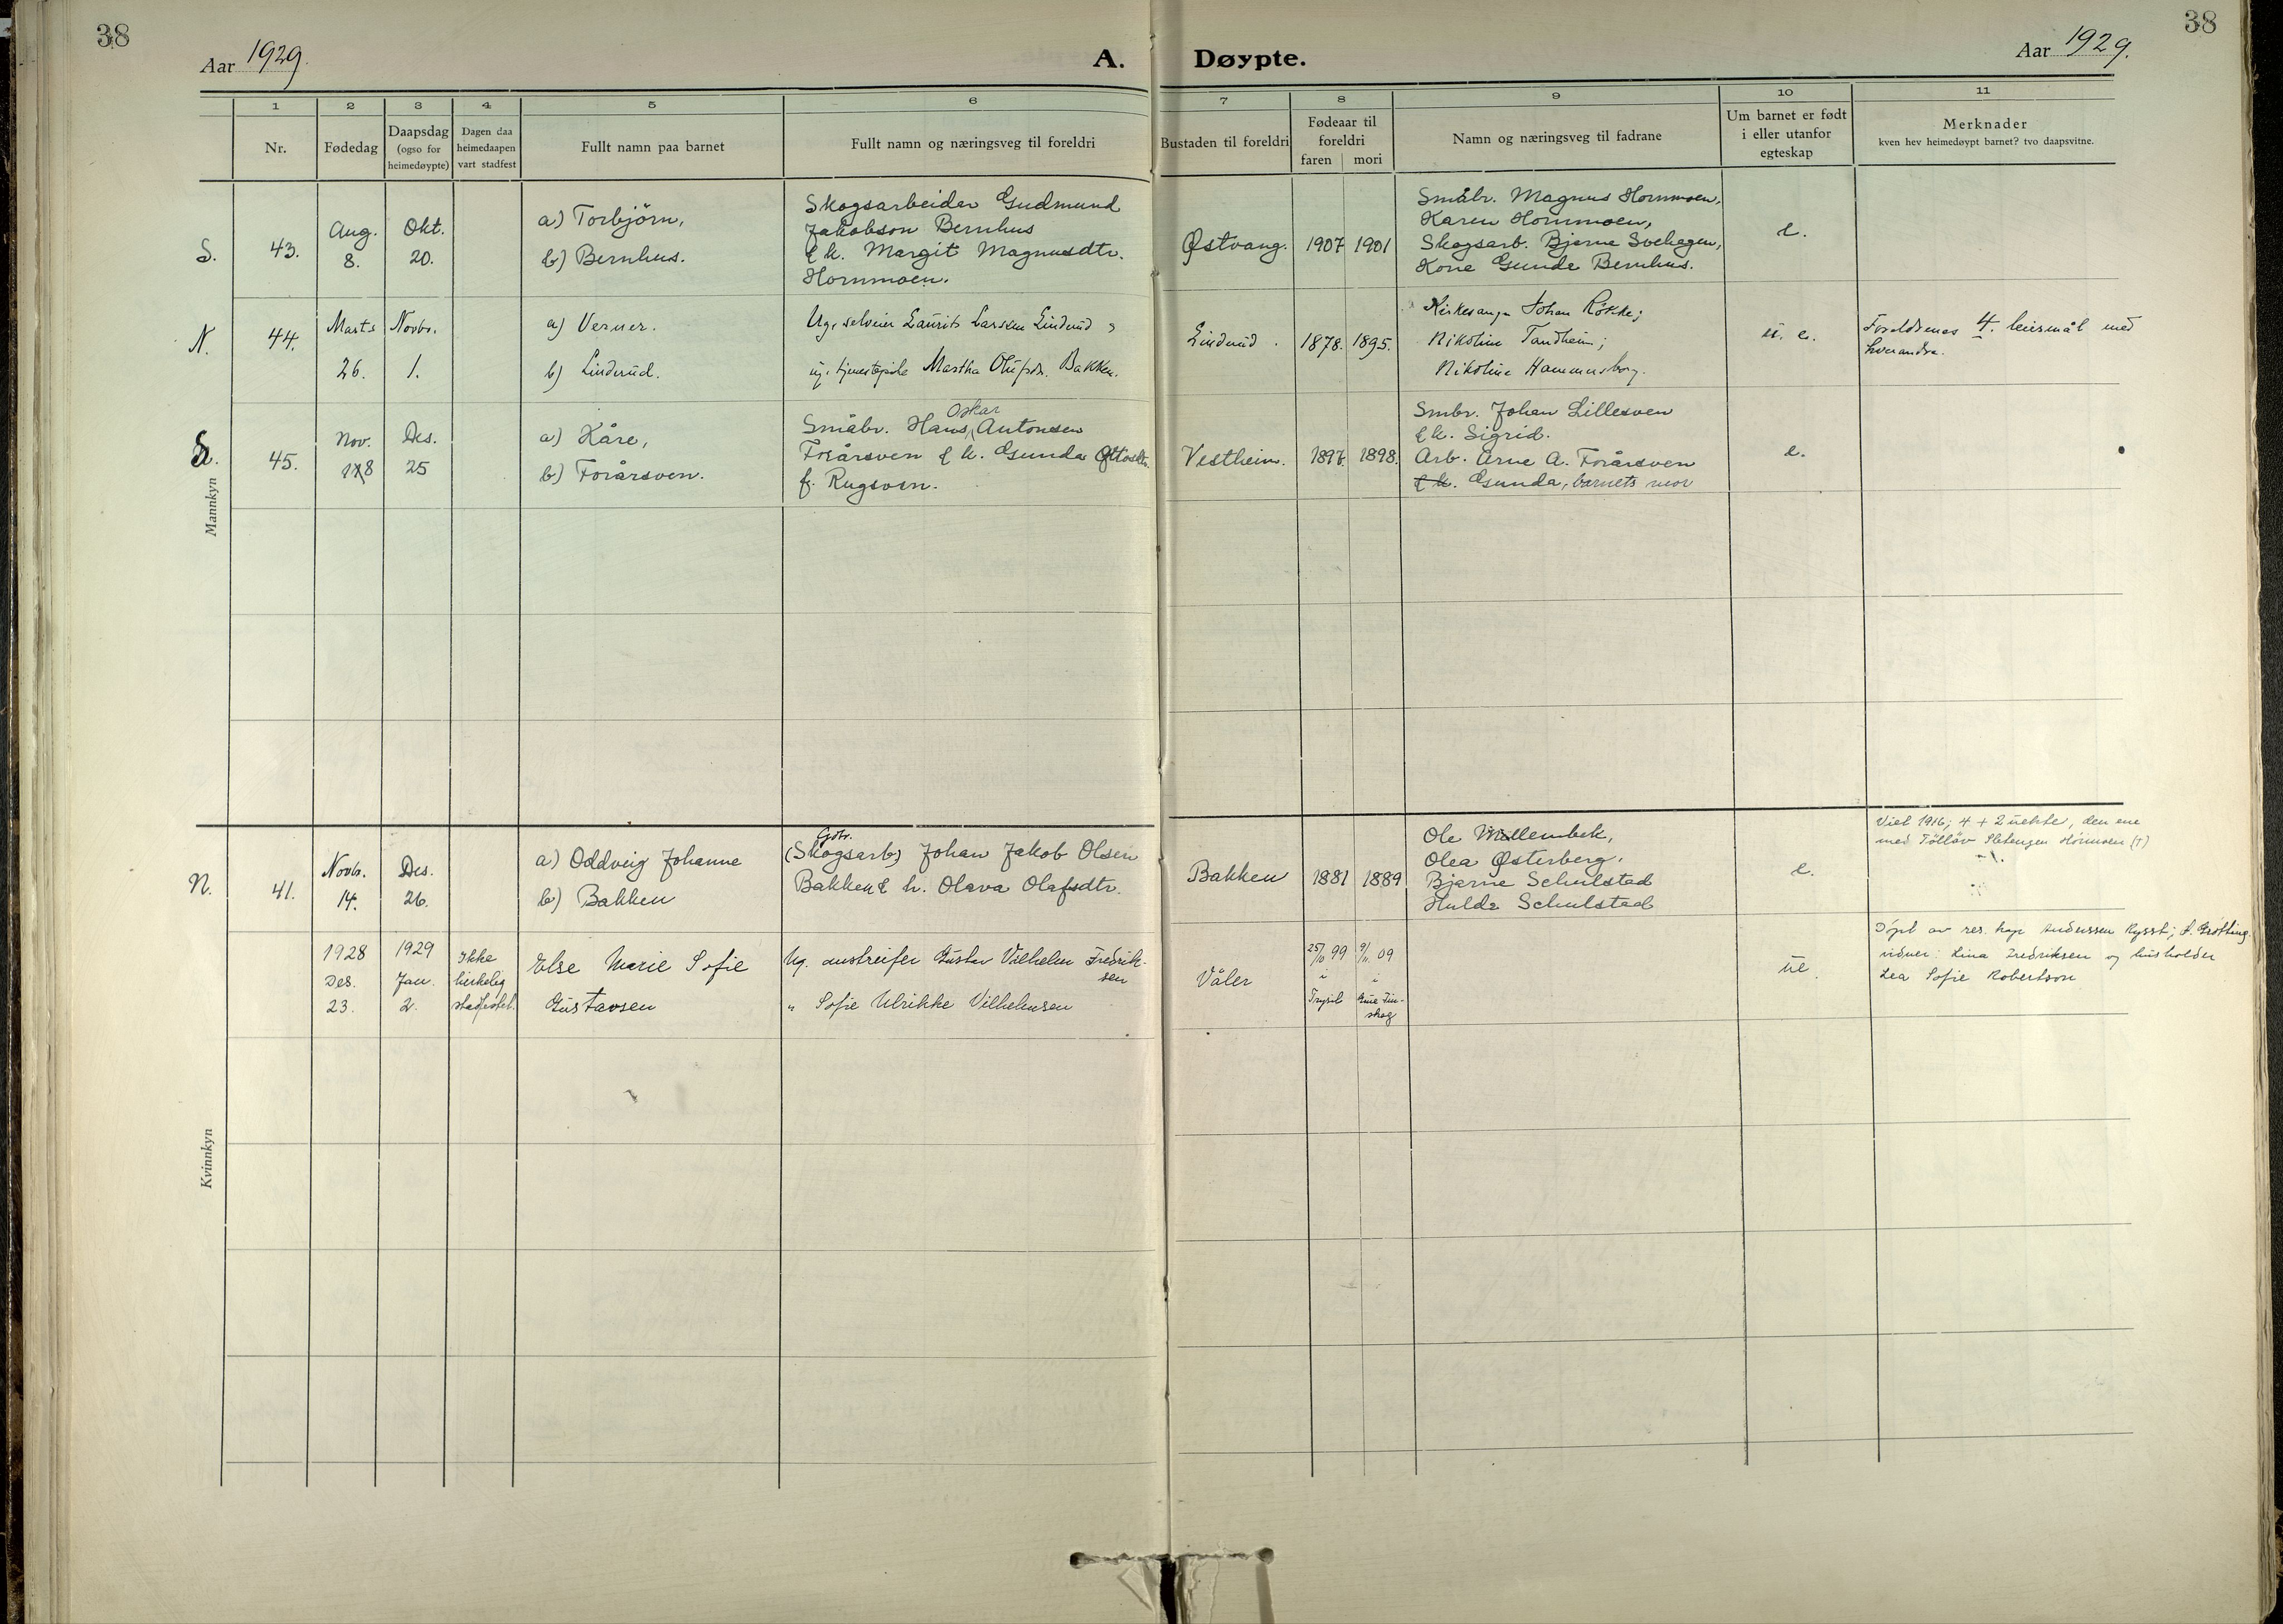 38
38
Aar 1929.
A. Døypte.
Aar 1929.
1 2 3 4 5 6 7 8 9 10 11
Nr.
Fødedag
Daapsdag
(ogso for
heimedøypte)
Dagen daa
heimedaapen
vart stadfest
Fullt namn paa barnet
Fullt namn og næringsveg til foreldri
Bustaden til foreldri
Fødeaar til
foreldri
faren mori
Namn og næringsveg til fadrane
Um barnet er født
i eller utanfor
egteskap
Merknader
kven hev heimedøypt barnet? tvo daapsvitne.
Mannkyn
S.
43.
Aug.
8.
Okt.
20.
a) Torbjörn,
b) Bernhus.
Skogsarbeider Gudmund
Jakobson Bernhus
& h. Margit Magnusdtr.
Hornmoen.
Østvang.
1907 1901
Småbr. Magnus Hornmoen,
Karen Hornmoen,
Skogsarb. Bjarne Svehagen,
Kone Gunda Bernhus.
e.
N.
44.
Marts
26.
Novbr.
1.
a) Verner.
b) Linderud.
Ug. selveier Laurits Larsen Linderud &
ug. tjenestepike Martha Olufsdr. Bakken.
Linderud.
1878. 1895.
Kirkesanger Johan Røkke;
Nikoline Tandheim;
Nikoline Hammersborg.
u. e.
Foreldrenes 4. leiermål med
hverandre.
S.
45.
Nov.
18
Des.
25
a) Kåre,
b) Forårsven.
Oskar
Småbr. Hans Antonsen
Forårsven & h. Gunda Ottosdtr.
f. Rugsven.
Vestheim.
1897. 1898.
Smbr. Johan Lillesven
& h. Sigrid.
Arb. Arne A. Forårsven
& h. Gunda, barnets mor
e.
Kvinnkyn
N.
41.
Novbr.
14.
Des.
26.
a) Oddveig Johanne
b) Bakken
Gbr.
(Skogsarb) Johan Jakob Olsen
Bakken & h. Olava Olafsdtr.
Bakken
1881 1889
Ole Møllembek,
Olea Østerberg.
Bjarne Schulstad
Hulda Schulstad
e.
Viet 1916; 4 + 2 uekte, den ene
med
1928
Des.
23.
1929
Jan.
2.
Ikke
kirkelig
stadfestet.
Else Marie Sofie
Gustavsen
Ug. omstreifer Gustav Vilhelm Fredrik-
sen
" Sofie Ulrikke Vilhelmsen
Våler
25/10 99
i
Trysil
9/11 09
i
Grue Fin-
skog
ue.
Döpt av res. kap. Anderssen Rysst; f. Grøtting.
vidner: Lina Fredriksen og husholder
Lea Sofie Robertson